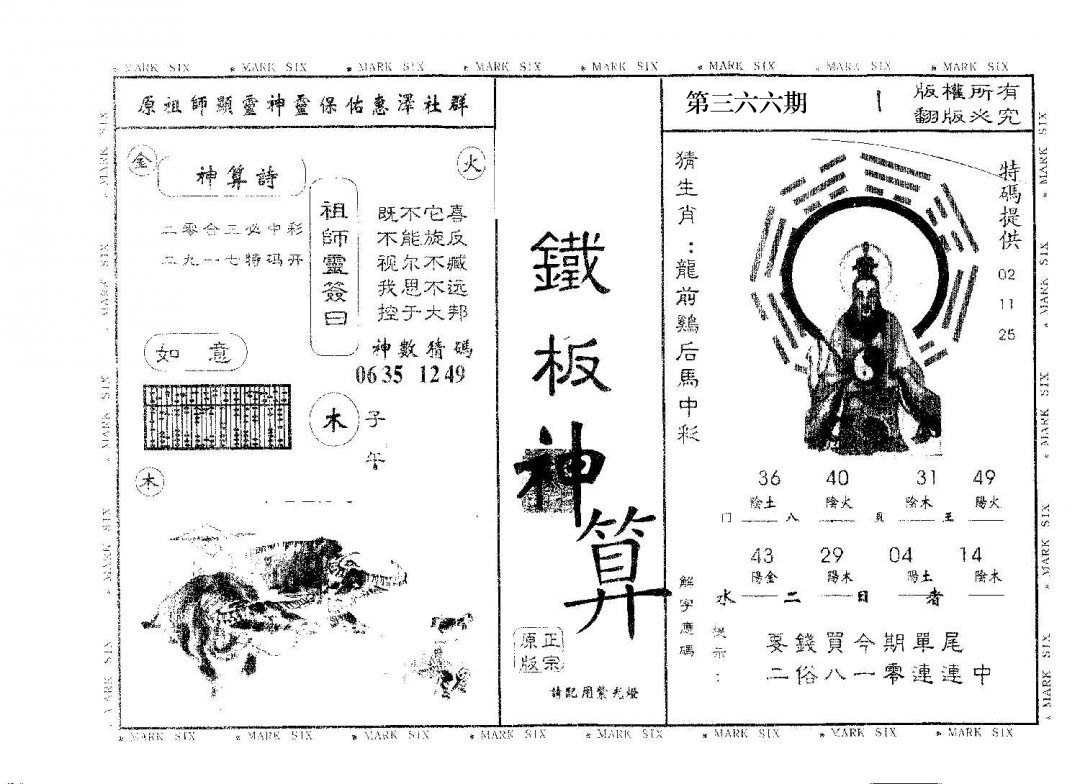 MARK SIX MARK SIX MARK SIX MARK SIX MARK SIX MARK SIX MARK SIX MARK SIX
原祖師顯靈神靈保佑惠澤社群
金
火
神算詩
二零合三必中彩
二九一七特码开
祖師靈簽曰
既不它喜
不能旋反
视尔不臧
我思不远
控于大邦
神數猜碼
06 35 12 49
如意
木
子
午
木
鐵板神算
正宗
原版
請配用紫光燈
第三六六期
版權所有
翻版必究
猜生肖：龍前鷄后馬中彩
特碼提供
02
11
25
36 40 31 49
陰土 陰火 陰木 陽火
门 八 見 王
43 29 04 14
陽金 陽木 陽土 陰木
水 二 日 者
解字應碼
提示：
要錢買今期單尾
二俗八一零連連中
MARK SIX MARK SIX MARK SIX MARK SIX MARK SIX MARK SIX MARK SIX MARK SIX